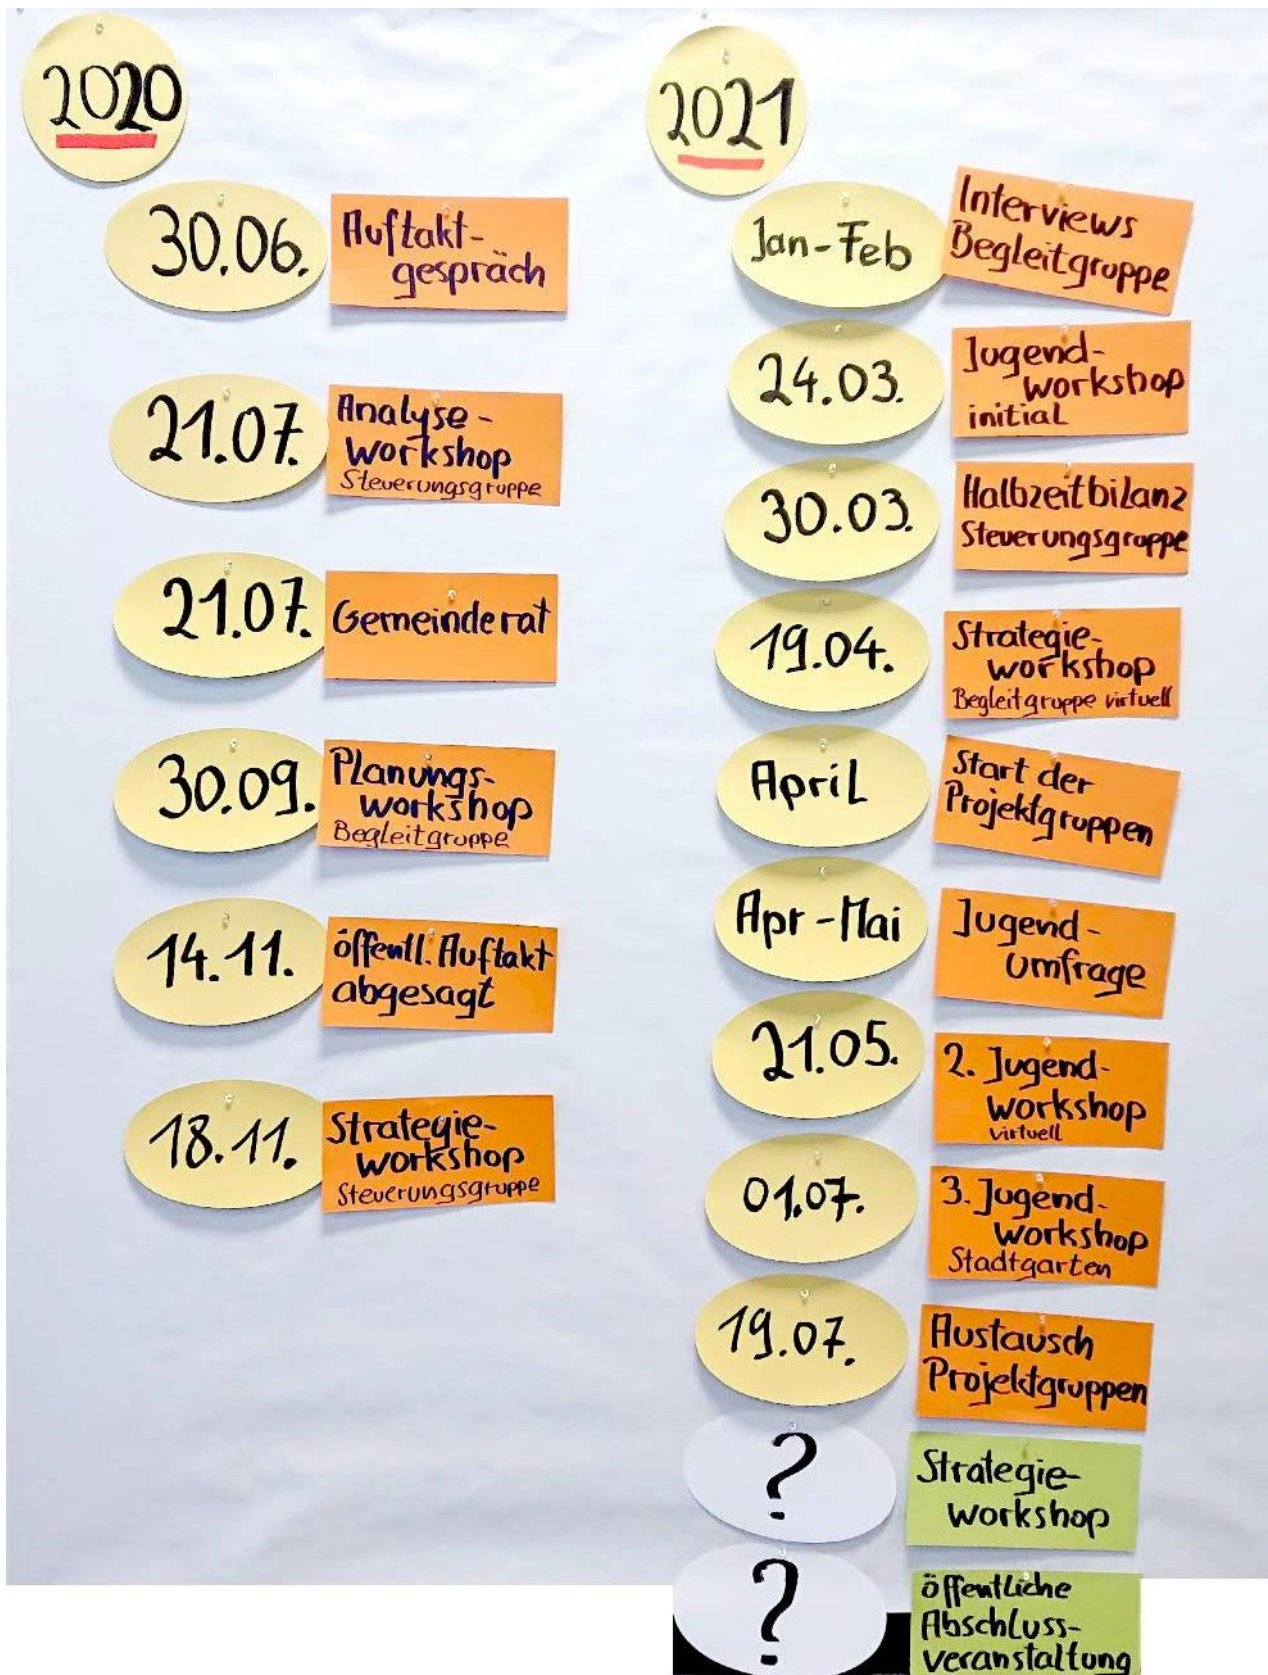 2020
30.06.
Auftakt-
gespräch
21.07.
Analyse-
workshop
Steuerungsgruppe
21.07.
Gemeinderat
30.09.
Planungs-
workshop
Begleitgruppe
14.11.
öffentl. Auftakt
abgesagt
18.11.
Strategie-
workshop
Steuerungsgruppe
2021
Jan-Feb
Interviews
Begleitgruppe
24.03.
Jugend-
workshop
initial
30.03.
Halbzeitbilanz
Steuerungsgruppe
19.04.
Strategie-
workshop
Begleitgruppe virtuell
April
Start der
Projektgruppen
Apr-Mai
Jugend-
umfrage
21.05.
2. Jugend-
workshop
virtuell
01.07.
3. Jugend-
workshop
Stadtgarten
19.07.
Austausch
Projektgruppen
?
Strategie-
workshop
?
öffentliche
Abschluss-
veranstaltung